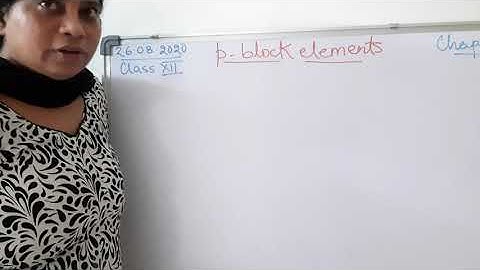 26.08.2020
Class XII
p-block elements
Chap